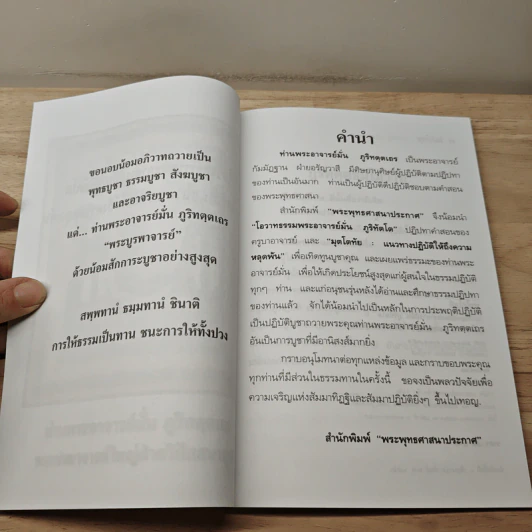 ขอนอบน้อมอภิวาทถวายเป็น
พุทธบูชา ธรรมบูชา สังฆบูชา
และอาจริยบูชา
แด่... ท่านพระอาจารย์มั่น ภูริทตฺตเถร
“พระบูรพาจารย์”
ด้วยน้อมสักการะบูชาอย่างสูงสุด
สพฺพทานํ ธมฺมทานํ ชินาติ
การให้ธรรมเป็นทาน ชนะการให้ทั้งปวง
คำนำ
ท่านพระอาจารย์มั่น ภูริทตฺตเถร เป็นพระอาจารย์
กัมมัฏฐาน ฝ่ายอรัญวาสี มีศิษยานุศิษย์ผู้ปฏิบัติตามปฏิปทา
ของท่านเป็นอันมาก ท่านเป็นผู้ปฏิบัติดีปฏิบัติชอบตามคำสอน
ของพระพุทธศาสนา
สำนักพิมพ์ “พระพุทธศาสนาประกาศ” จึงน้อมนำ
“โอวาทธรรมพระอาจารย์มั่น ภูริทัตโต” ปฏิปทาคำสอนของ
ครูบาอาจารย์ และ “มุตโตทัย : แนวทางปฏิบัติให้ถึงความ
หลุดพ้น” เพื่อเทิดทูนบูชาคุณ และเผยแพร่ธรรมะของท่านพระ
อาจารย์มั่น เพื่อให้เกิดประโยชน์สูงสุดแก่ผู้สนใจในธรรมปฏิบัติ
ทุกๆ ท่าน และแก่อนุชนรุ่นหลังได้อ่านและศึกษาธรรมปฏิปทา
ของท่านแล้ว จักได้น้อมนำไปเป็นหลักในการประพฤติปฏิบัติ
เป็นปฏิบัติบูชาถวายพระคุณท่านพระอาจารย์มั่น ภูริทตฺตเถร
อันเป็นการบูชาที่มีอานิสงส์มากยิ่ง
กราบอนุโมทนาต่อทุกแหล่งข้อมูล และกราบขอบพระคุณ
ทุกท่านที่มีส่วนในธรรมทานในครั้งนี้ ขอจงเป็นพลวปัจจัยเพื่อ
ความเจริญแห่งสัมมาทิฏฐิและสัมมาปฏิบัติยิ่งๆ ขึ้นไปเทอญ.
สำนักพิมพ์ “พระพุทธศาสนาประกาศ”